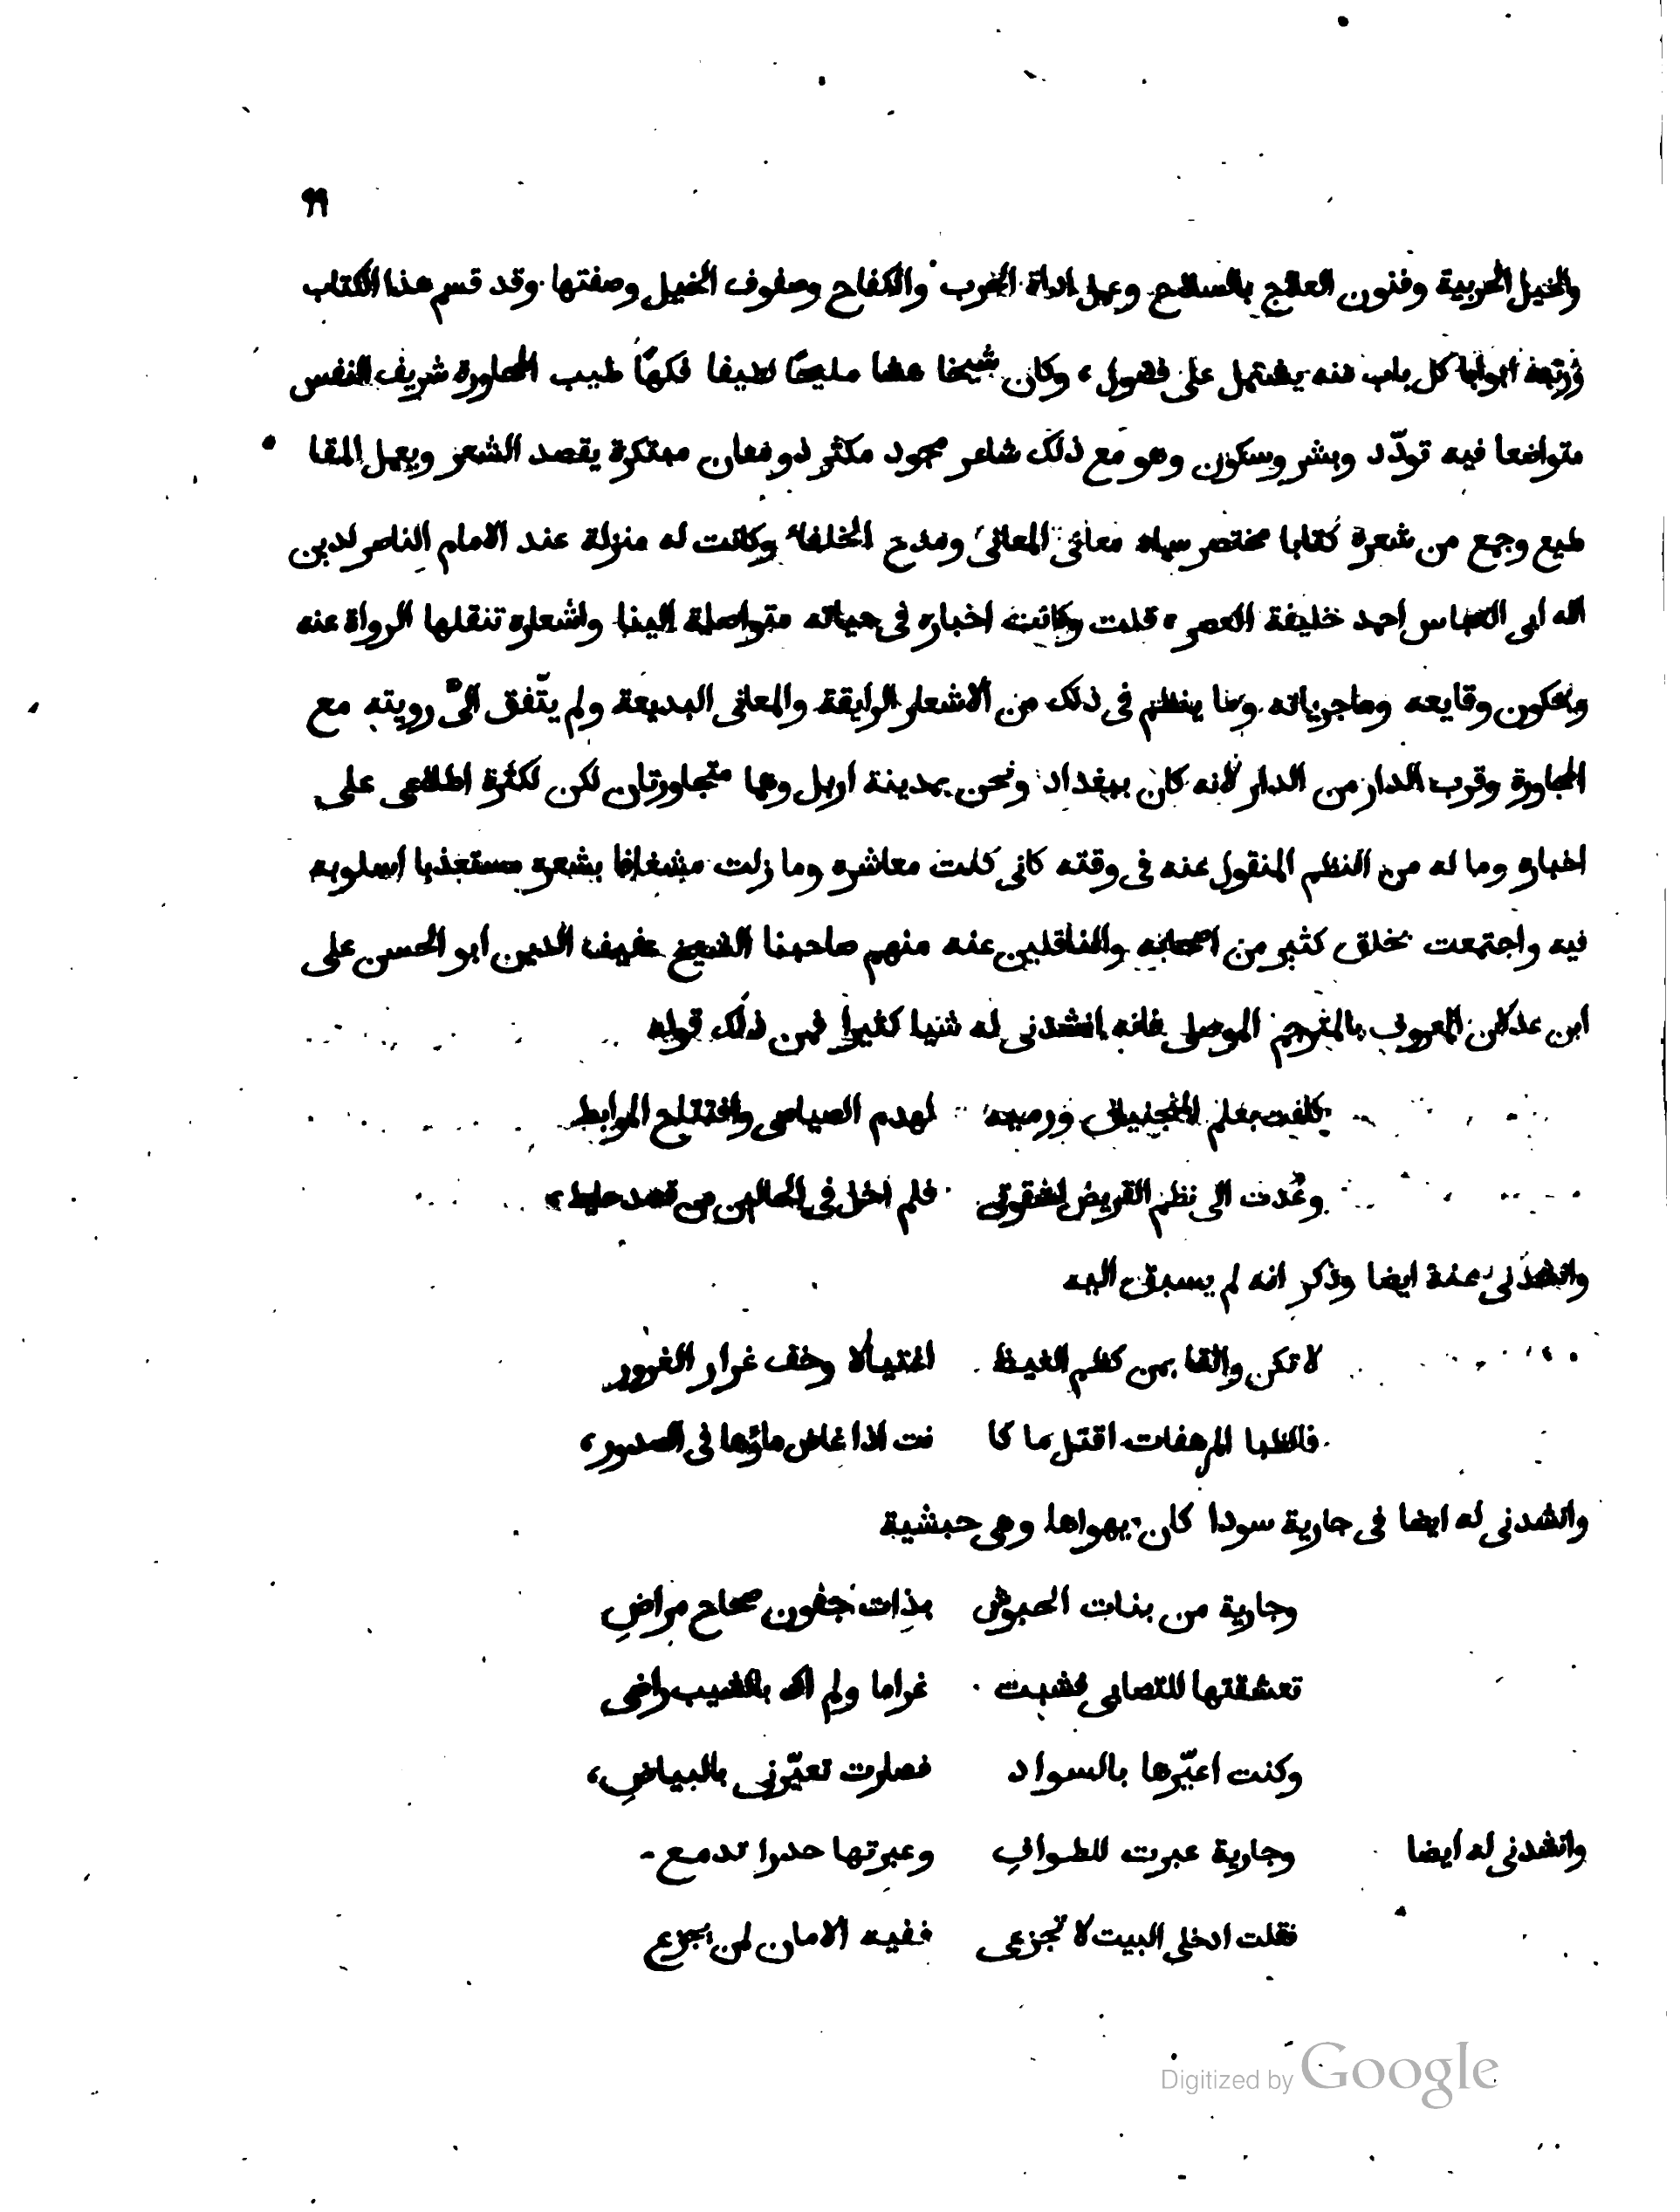 ٩٩
والخيل الحربية وفنون العلاج بالسلاح وعمل اداة الحرب والكفاح وصفوف الخيل وصفتها وقد قسم هذا الكتاب
ورتبه ابوابا كل باب منه يشتمل على فصول، وكان شيخا هشا مليحًا لطيفا فكهًا طيب المحاورة شريف النفس
متواضعا فيه تودّد وبشر وسكون وهو مع ذلك شاعر مجود مكثر ذو معان مبتكرة يقصد الشعر ويعمل المقا
طيع وجمع من شعره كتابا مختصر سماه معانى المعانى ومدح الخلفاء وكانت له منزلة عند الامام الناصر لدين
الله ابى العباس احمد خليفة العصر، قلت وكانت اخباره فى حياته متواصلة الينا واشعاره تنقلها الرواة عنه
ويحكون وقايعه وماجرياته وما ينظم فى ذلك من الاشعار الرايقة والمعانى البديعة ولم يتّفق الىّ رويته مع
المجاورة وقرب الدار من الدار لانه كان ببغداد ونحن بمدينة اربل وهما متجاورتان لكن لكثرة اطلاعى على
اخباره وما له من النظم المنقول عنه فى وقته كانى كنت معاشره وما زلت مشغافا بشعره مستعذبا اسلوبه
فيه واجتمعت بخلق كثير من اصحابه والناقلين عنه منهم صاحبنا الشيخ عفيف الدين ابو الحسن على
ابن عدلان المعروف بالمترجم الموصلى فانه انشدنى له شيا كثيرا فمن ذلك قوله
كلفت بعلم المنجنيق ورميه لهدم الصياصى وافتتاح المرابط
وعُدت الى نظم القريض لشقوتى فلم اخل فى الحالين من قصد حايط،
وانشدنى عنه ايضا وذكر انه لم يسبق اليه
لا تكن واثقا بمن كظم الغيظ اغتيالا وخف غرار الغرور
فالظبا المرهفات اقتل ما كا نت اذا غاض ماؤها فى الصدور،
وانشدنى له ايضا فى جارية سودا كان يهواها وهى حبشية
وجارية من بنات الحبوش بذات جفون صحاح مراضِ
تعشقتها للتصابى فشبت غراما ولم اك بالشيب راضى
وكنت اعيّرها بالسواد فصارت تعيّرنى بالبياضِ،
وانشدنى له ايضا وجارية عبرت للطوافِ وعبرتها حدرا تدمع
فقلت ادخلى البيت لا تجزعى ففيه الامان لمن يجزع
Digitized by Google